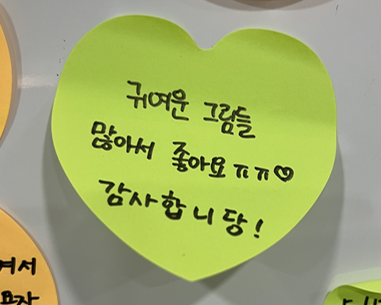 귀여운 그림들
많아서 좋아요ㅠㅠ♡
감사합니당!
겨서